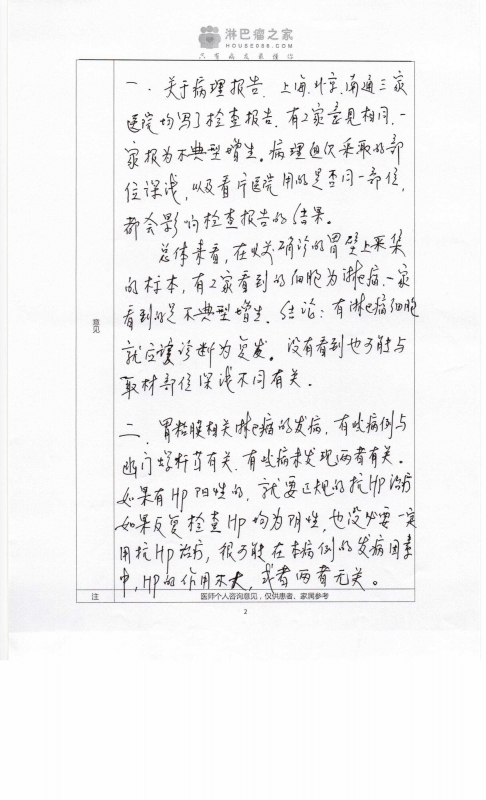 淋巴瘤之家
HOUSE086.COM
只有病友最懂你
一、关于病理报告. 上海、北京、南通三家
医院均写了检查报告. 有2家意见相同. 一
家报为不典型增生. 病理四次采取的部
位深浅, 以及看片医院用的是否同一部位,
都会影响检查报告的结果。
总体来看, 在以前确诊的胃壁上采集
的标本, 有2家看到的细胞为淋巴瘤. 一家
看到的是不典型增生. 结论: 有淋巴瘤细胞
就应该诊断为复发. 没有看到也可能与
取材部位深浅不同有关.
意见
二、胃粘膜相关淋巴瘤的发病, 有些病例与
幽门螺杆菌有关. 有些病未发现两者有关.
如果有HP阳性的, 就要正规的抗HP治疗
如果反复检查HP均为阴性, 也没必要一定
用抗HP治疗, 很可能在本病例的发病因素
中, HP的作用不大, 或者两者无关。
注
医师个人咨询意见,仅供患者、家属参考
2